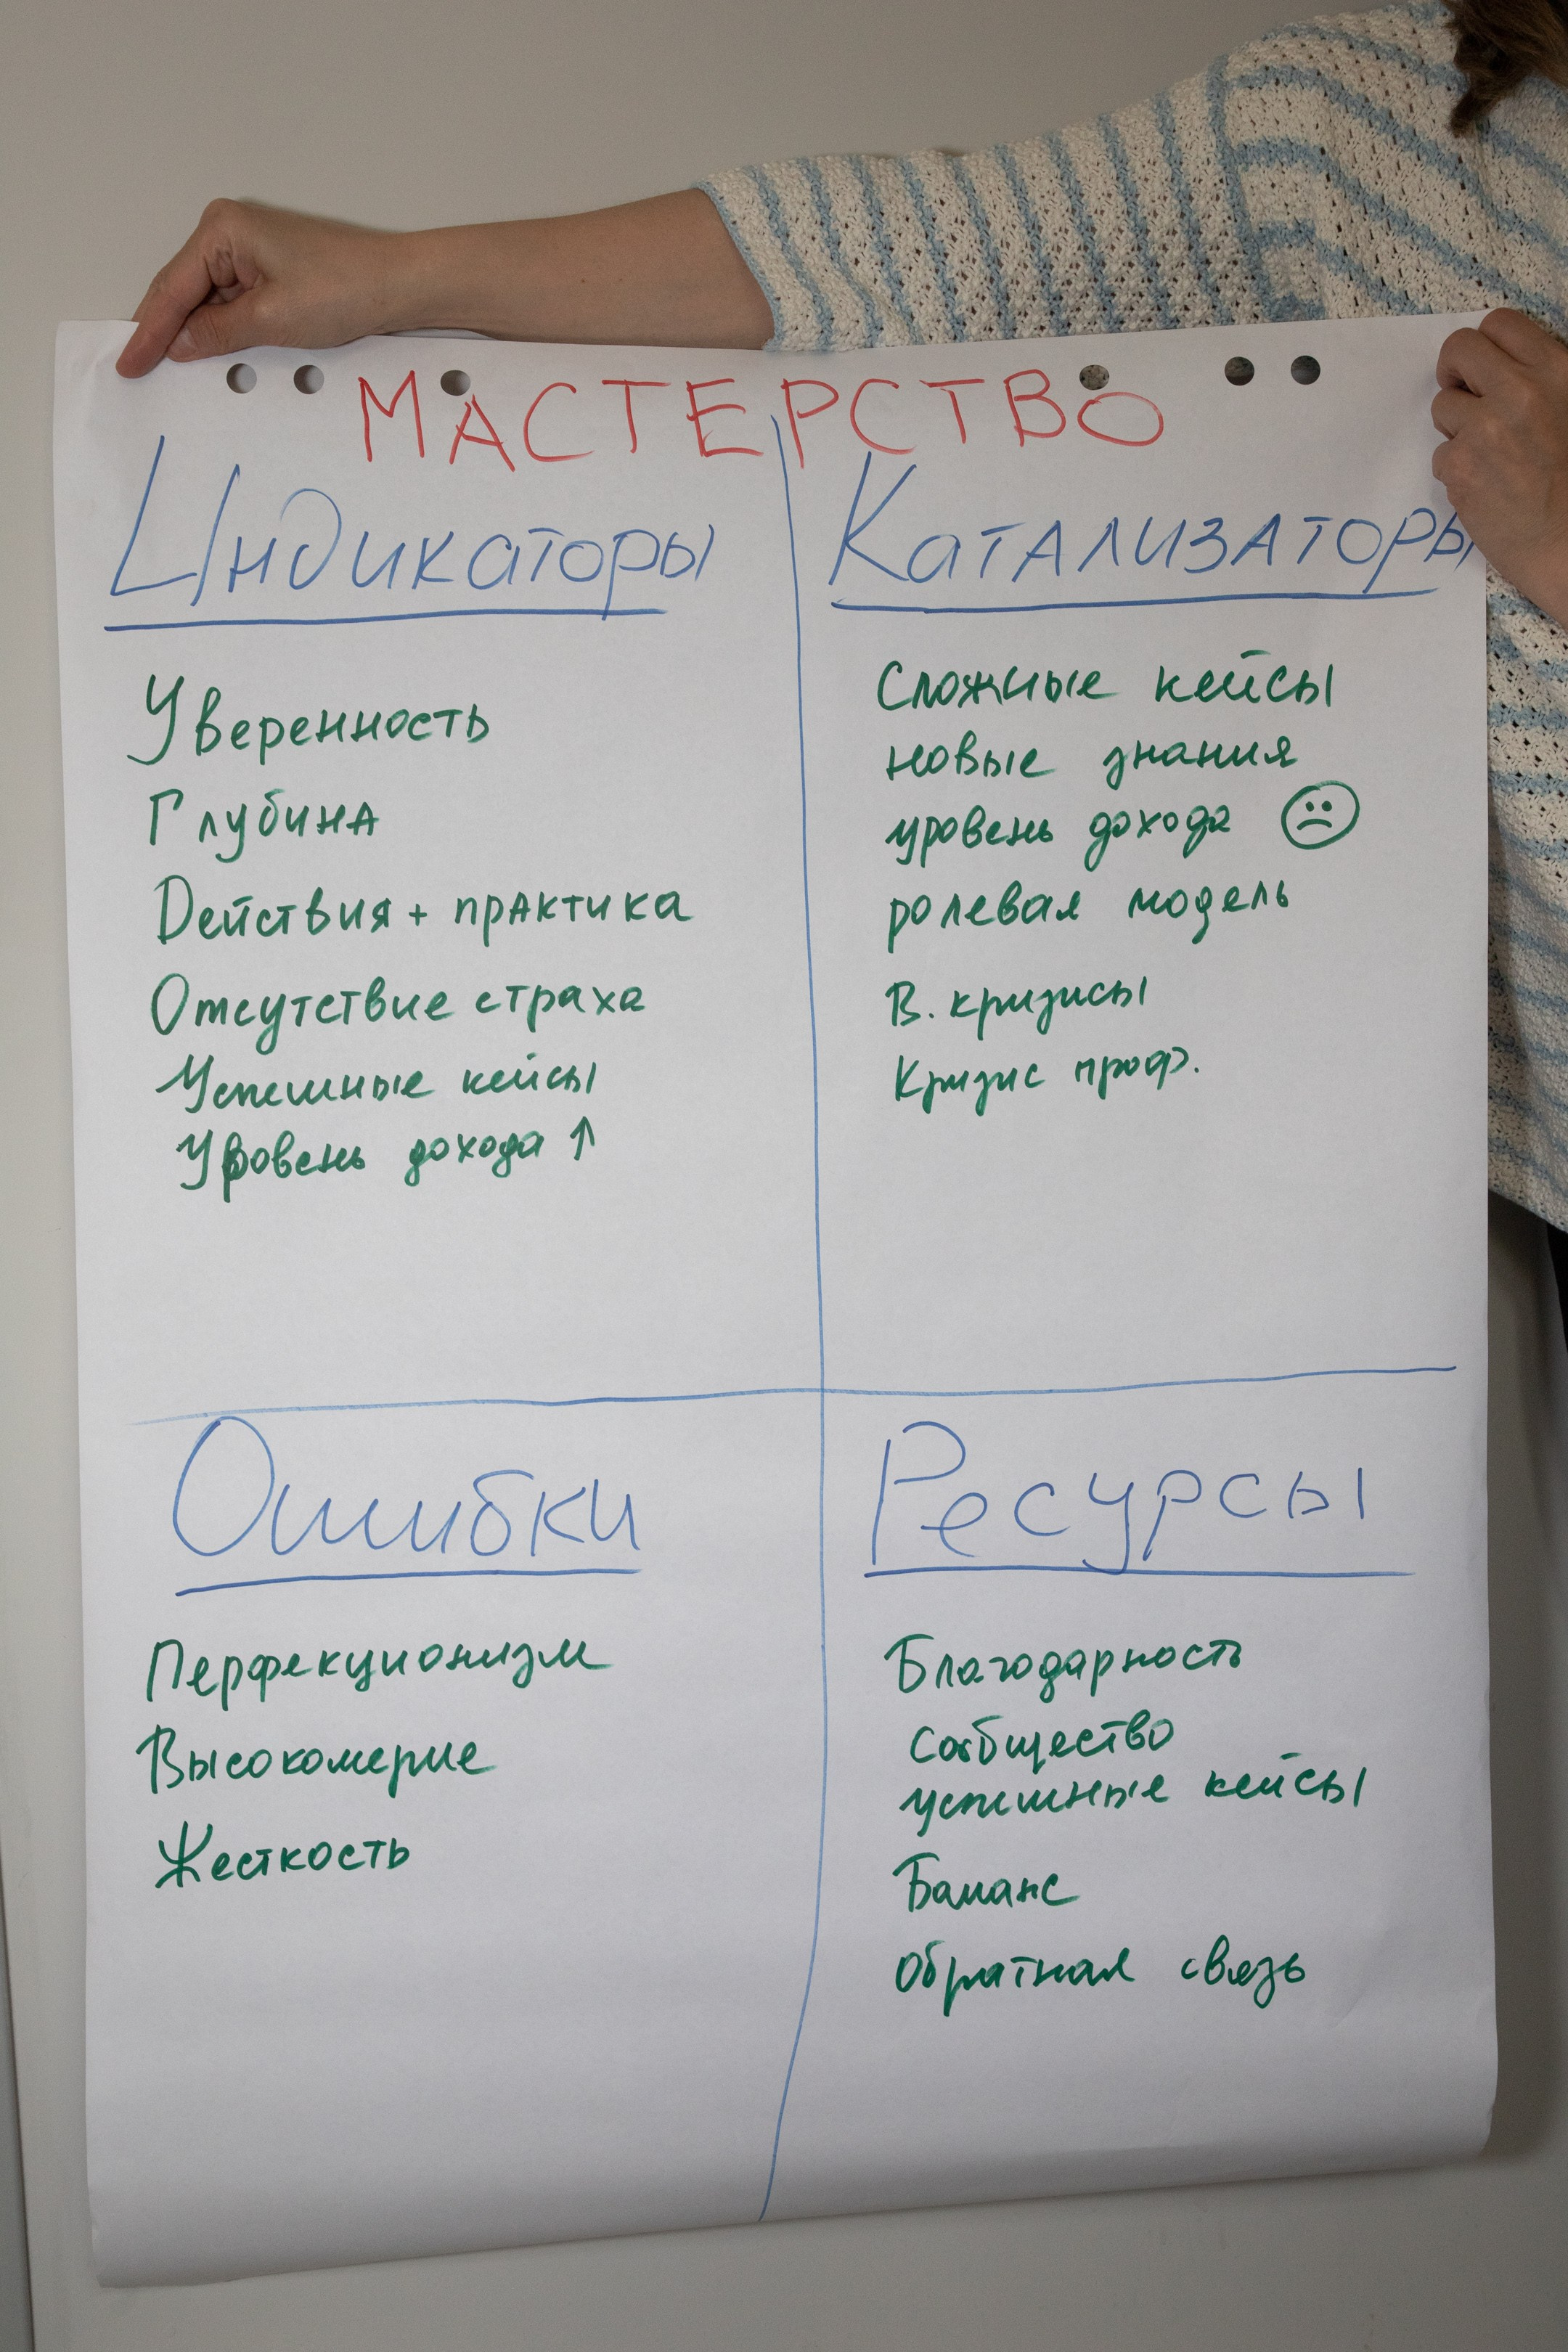 МАСТЕРСТВО
Индикаторы
Уверенность
Глубина
Действия + практика
Отсутствие страха
Успешные кейсы
Уровень дохода ↑
Катализаторы
Сложные кейсы
новые знания
уровень дохода ☹
ролевая модель
В. кризисы
Кризис проф.
Ошибки
Перфекционизм
Высокомерие
Жесткость
Ресурсы
Благодарность
Сообщество
успешные кейсы
Баланс
Обратная связь